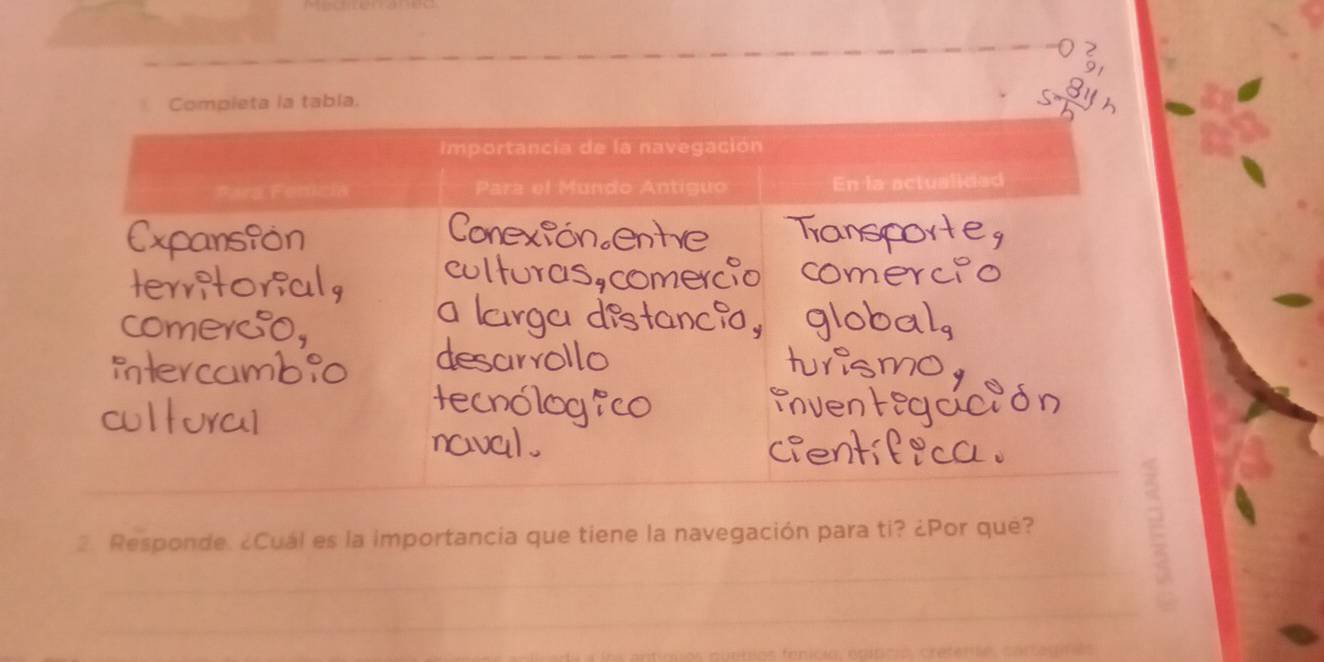 Completa la tabla.
Importancia de la navegación
Para Fenicia
Para el Mundo Antiguo
En la actualidad
Expansión
territorial,
comercio,
intercambio
cultural
Conexión.entre
culturas,comercio
a larga distancia,
desarrollo
tecnólogico
naval.
Transporte,
comercio
global,
turismo,
inventigación
científica.
2. Responde. ¿Cuál es la importancia que tiene la navegación para ti? ¿Por qué?
© SANTILLANA